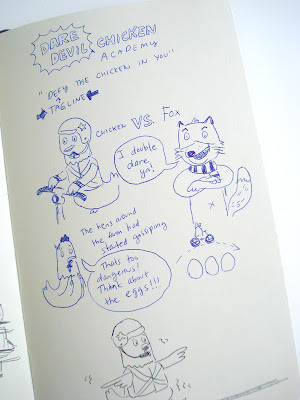 DARE DEVIL CHICKEN
ACADEMY
"DEFY THE CHICKEN IN YOU"
TAGLINE
CHICKEN VS. FOX
I double
dare
ya!
The hens around
the farm had
started gossipping
Thats too
dangerous!
Think about
the eggs!!!